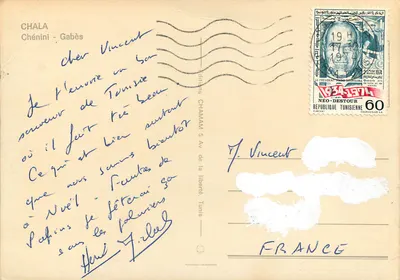 CHALA
Chénini - Gabès
Cher Vincent
Je t'envoie un bon
souvenir de Tunisie
où il fait très beau
Ce qui est bien surtout
que nous sommes bientôt
à Noël - Tentes de
Papins je fêterai ça
sous les palmiers
Editions CHAMAM 5 Av. de la liberté Tunis
19 H
1934-1974
NEO-DESTOUR
REPUBLIQUE TUNISIENNE
60
M. Vincent
FRANCE